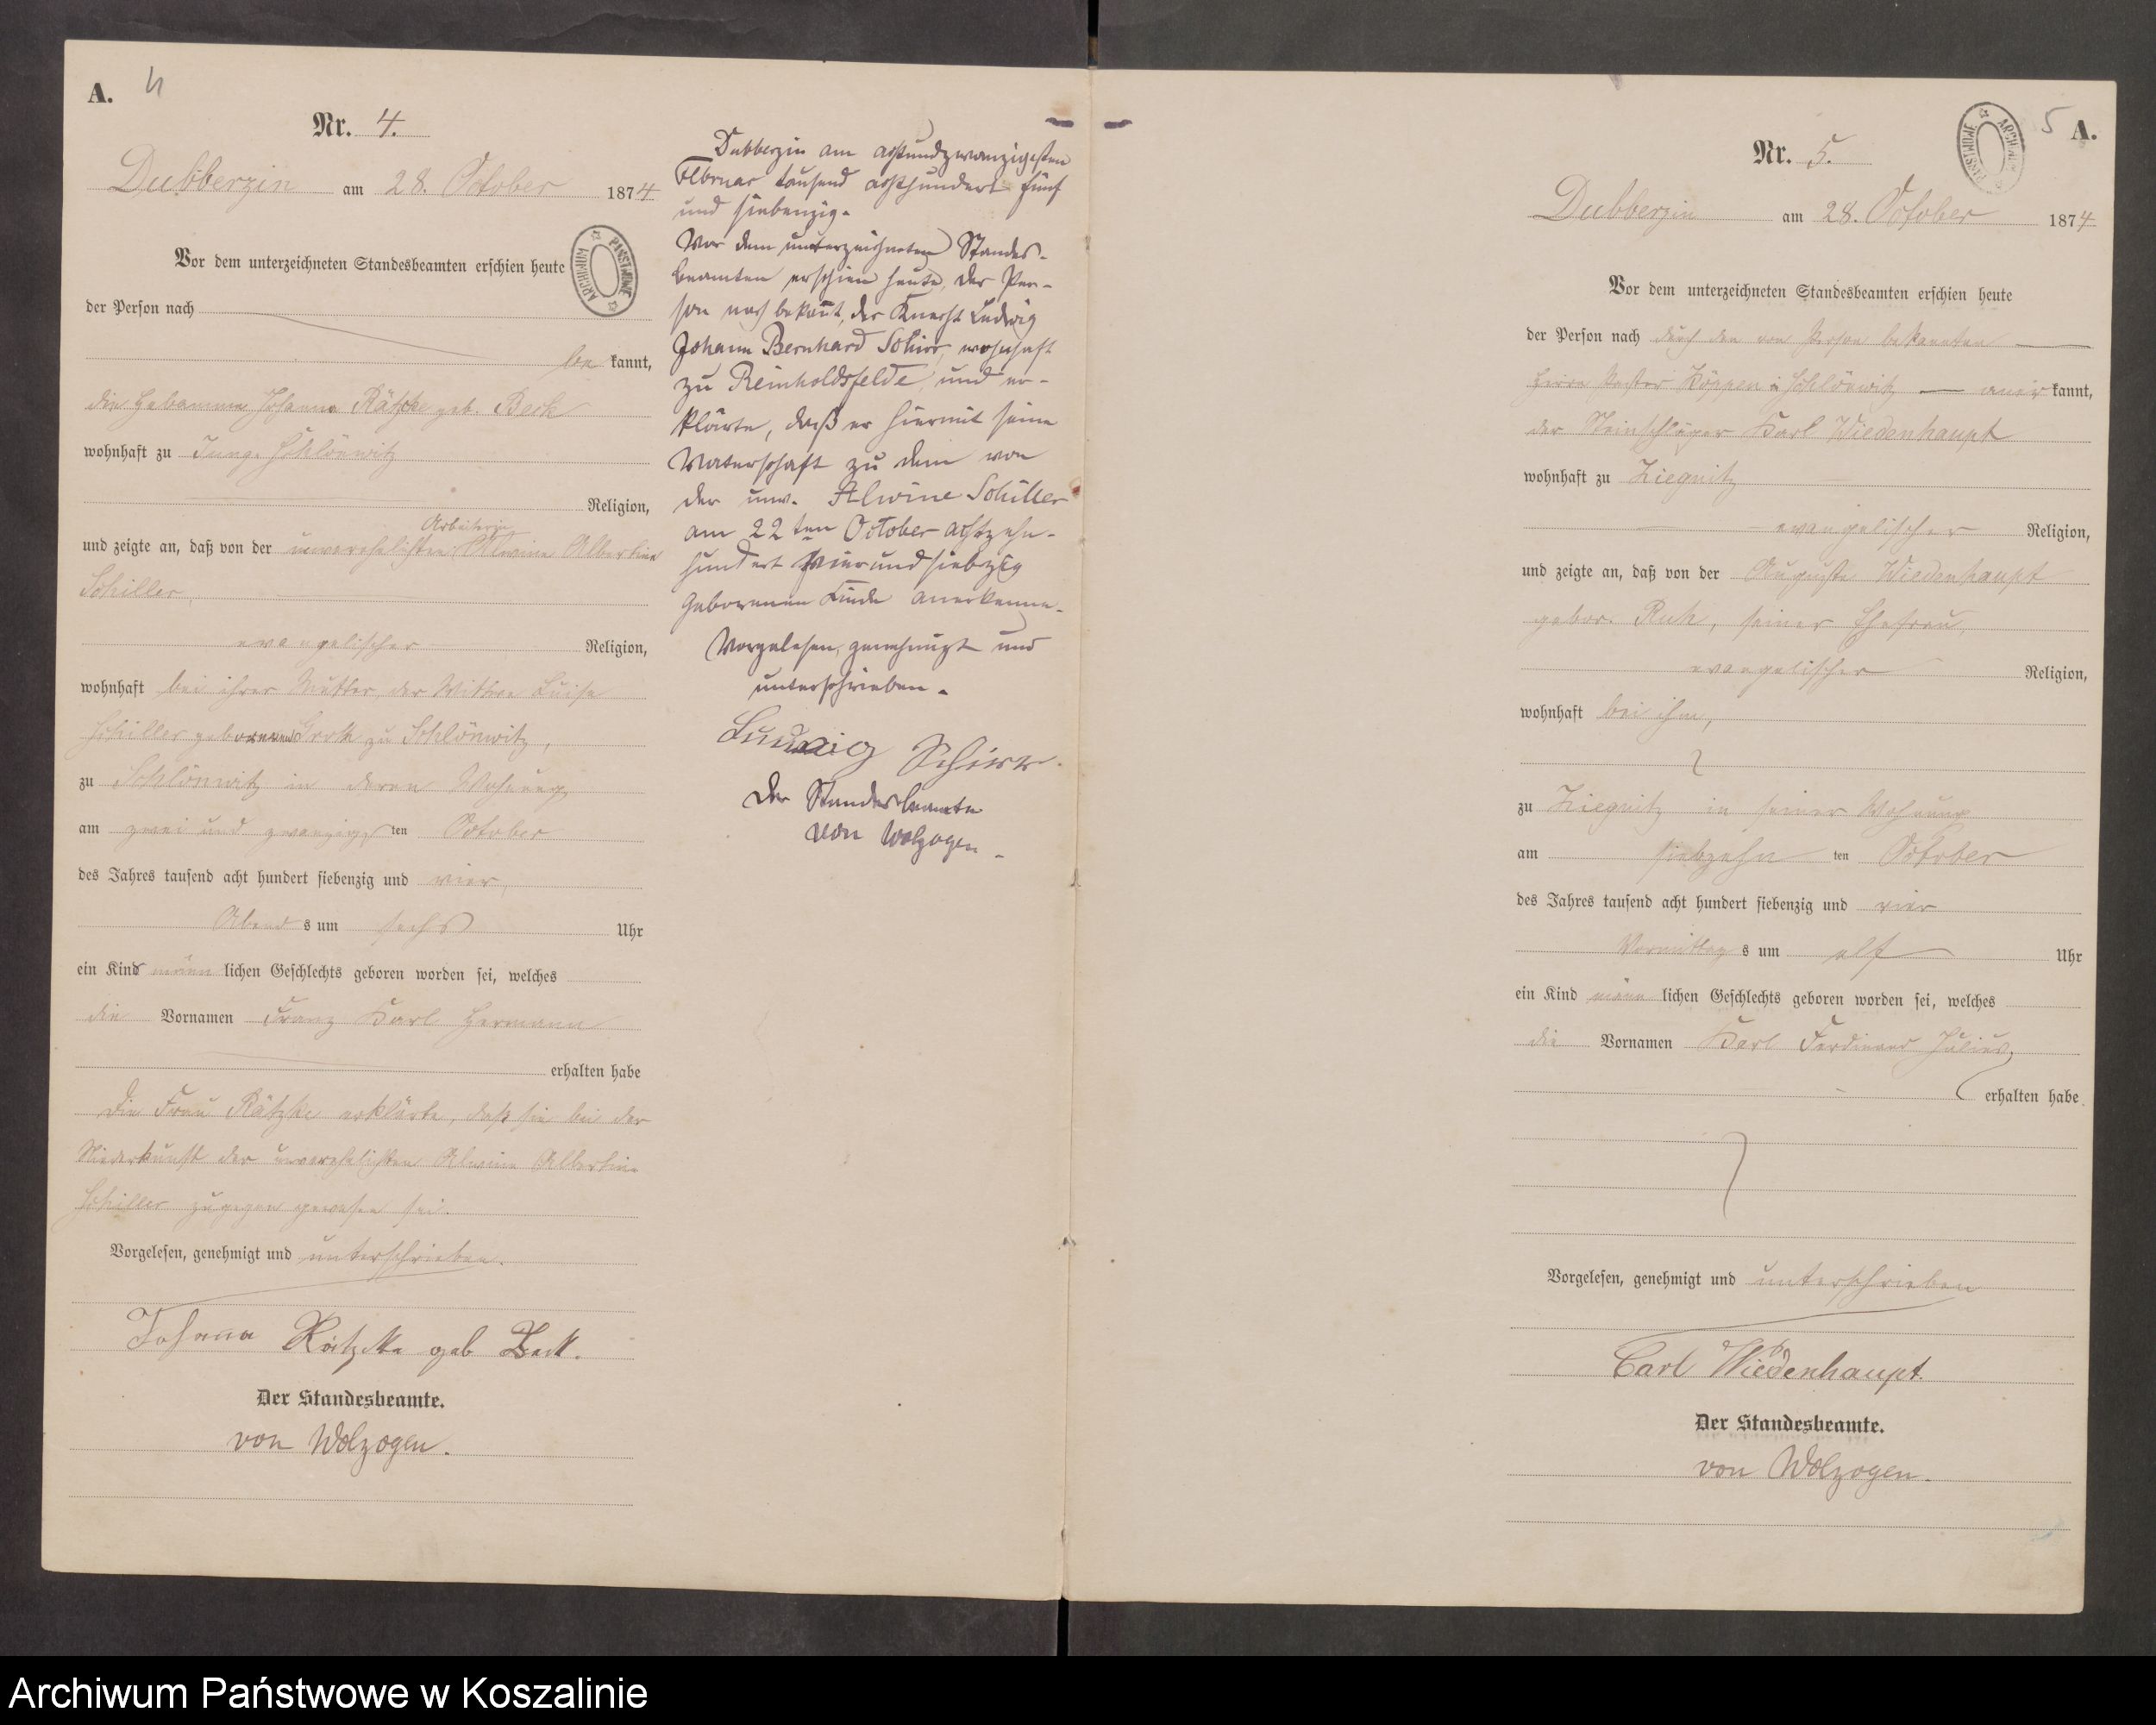 A. 4
Nr. 4.
Dubberzin am 28. October 1874
Vor dem unterzeichneten Standesbeamten erschien heute
der Person nach
be kannt,
die Hebamme Johanna Rätzke geb. Beck
wohnhaft zu Schlönwitz
Religion,
Arbeiterin
und zeigte an, daß von der unverehelichten Alwine Albertine
Schiller,
evangelischer Religion,
wohnhaft bei ihrer Mutter, der Wittwe Luise
Schiller geborenen zu Schlönwitz,
zu Schlönwitz in deren Wohnung
am zwei und zwanzigs ten October
des Jahres tausend acht hundert siebenzig und vier,
Abend s um sechs Uhr
ein Kind männ lichen Geschlechts geboren worden sei, welches
die Vornamen Franz Karl Hermann
erhalten habe
Die Frau Rätzke erklärte, daß sie bei der
Niederkunft der unverehelichten Alwine Albertine
Schiller zugegen gewesen sei.
Vorgelesen, genehmigt und unterschrieben.
Johanna Rätzke geb Beck.
Der Standesbeamte.
von Wolzogen.
Dubberzin am achtundzwanzigsten
Februar tausend achthundert fünf
und siebenzig.
Vor dem unterzeichneten Standes-
beamten erschien heute, der Per-
son nach bekannt, der Knecht Ludwig
Johann Bernhard Schirr, wohnhaft
zu Reinholdsfelde, und er-
klärte, daß er hiermit seine
Vaterschaft zu dem von
der unv. Alwine Schiller
am 22ten October achtzehn-
hundert vierundsiebzig
geborenen Kinde anerkenne.
Vorgelesen, genehmigt und
unterschrieben.
Ludwig Schirr.
Der Standesbeamte
von Wolzogen.
ARCHIWUM PAŃSTWOWE
5 A.
Nr. 5.
ARCHIWUM PAŃSTWOWE
Dubberzin am 28. October 1874
Vor dem unterzeichneten Standesbeamten erschien heute
der Person nach durch den von Person bekannten
Herrn Pastor Köppen in Schlönwitz aner kannt,
der Steinschläger Karl Wiedenhaupt
wohnhaft zu Ziegnitz
evangelischer Religion,
und zeigte an, daß von der Auguste Wiedenhaupt
gebor. Ruh, seiner Ehefrau,
evangelischer Religion,
wohnhaft bei ihm,
zu Ziegnitz in seiner Wohnung
am siebzehn ten October
des Jahres tausend acht hundert siebenzig und vier
Vormittag s um elf Uhr
ein Kind männ lichen Geschlechts geboren worden sei, welches
die Vornamen Karl Ferdinand Julius,
erhalten habe.
Vorgelesen, genehmigt und unterschrieben
Carl Wiedenhaupt.
Der Standesbeamte.
von Wolzogen.
Archiwum Państwowe w Koszalinie